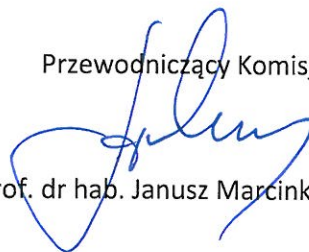 Przewodniczący Komis
rof. dr hab. Janusz Marcink